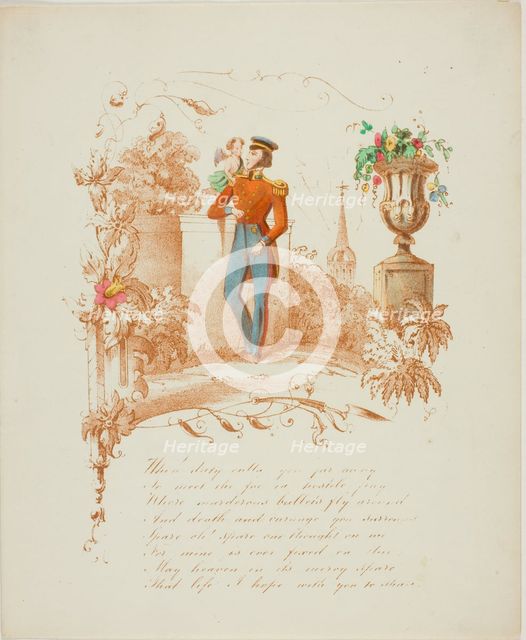 When duty calls you far away
To meet the foe in hostile fray
Where murderous bullets fly around
And death and carnage you surround
Spare oh! spare one thought on me
For mine is ever fixed on thee
May heaven in its mercy spare
That life I hope with you to share
Heritage
Heritage
Heritage
Heritage
Heritage
Heritage